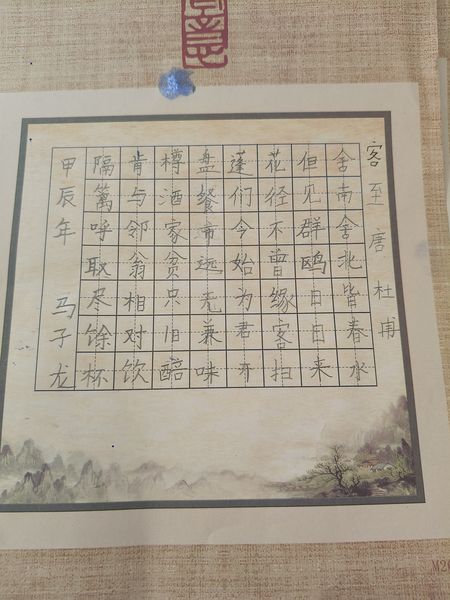 客至 唐 杜甫
舍南舍北皆春水
但见群鸥日日来
花径不曾缘客扫
蓬们今始为君开
盘飧市远无兼味
樽酒家贫只旧醅
肯与邻翁相对饮
隔篱呼取尽馀杯
甲辰年 马子龙